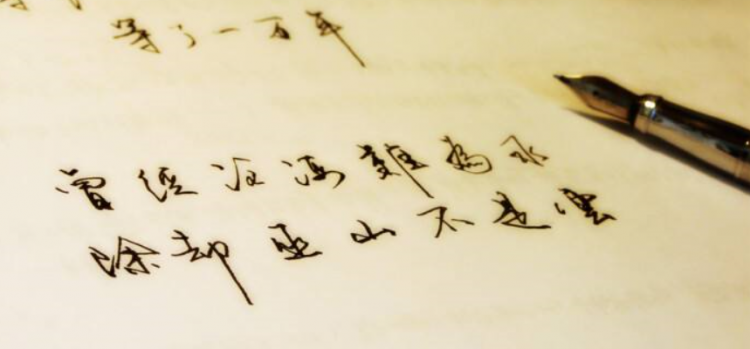 等了一百年
曾经沧海難為水
除却巫山不是雲